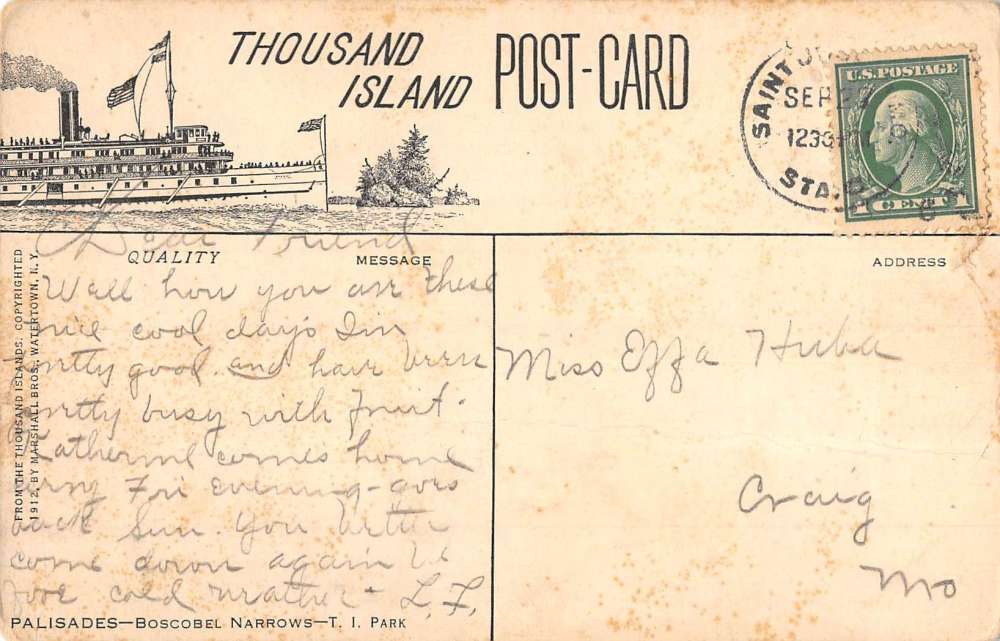 THOUSAND
ISLAND
POST-CARD
SAINT JO
SEP 23
1230
STA.
U.S. POSTAGE
1 CENT 1
QUALITY
MESSAGE
ADDRESS
FROM THE THOUSAND ISLANDS. COPYRIGHTED
1912, BY MARSHALL BROS., WATERTOWN, N.Y.
Dear Friend
Well how you are these
nice cool days I'm
pretty good. and have been
pretty busy with fruit.
Katherine comes home
every Fri evening - goes
back Sun. You better
come down again be
fore cold weather - L.F.
Miss Effa Huba
Craig
Mo
PALISADES—BOSCOBEL NARROWS—T. I. PARK